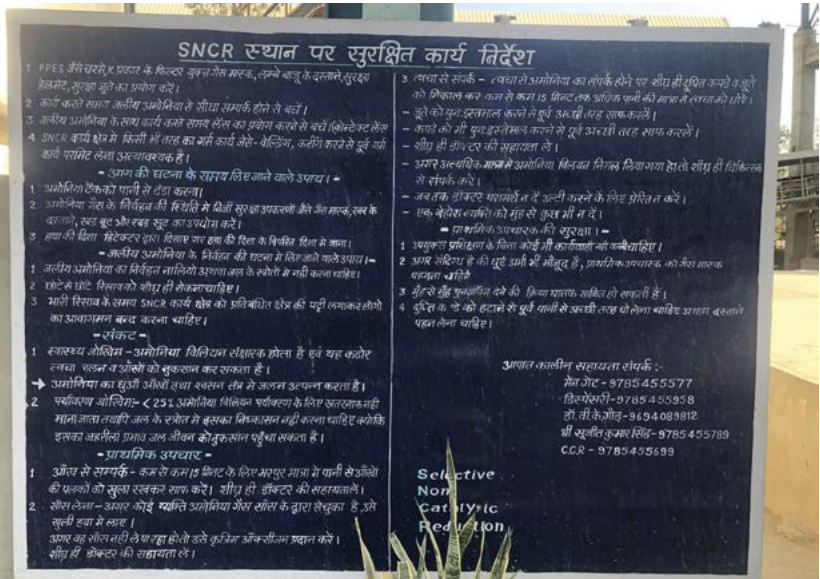 SNCR स्थान पर सुरक्षित कार्य निर्देश
1 PPES जैसे चश्मे, K प्रकार के फिल्टर युक्त गैस मास्क, लम्बे बाजू के दस्ताने, सुरक्षा
हेलमेट, सुरक्षा जूते का प्रयोग करें।
2 कार्य करते समय जलीय अमोनिया से सीधा सम्पर्क होने से बचें।
3 जलीय अमोनिया के साथ कार्य करते समय लेंस का प्रयोग करने से बचें। (कोन्टेक्ट लेंस
4 SNCR कार्य क्षेत्र में किसी भी तरह का गर्म कार्य जैसे- वेल्डिंग, कटींग करने से पूर्व गर्म
कार्य परमिट लेना अत्यावश्यक है।
- आग की घटना के समय लिए जाने वाले उपाय। -
1 अमोनिया टैंक को पानी से ठंडा करना।
2 अमोनिया गैस के निर्वहन की स्थिति में निजी सुरक्षा उपकरणों जैसे गैस मास्क, रबर के
दस्ताने, रबड़ बूट और रबड़ सूट का उपयोग करें।
3 हवा की दिशा डिटेक्टर द्वारा दिखाए गए हवा की दिशा के विपरित दिशा में जाना।
- जलीय अमोनिया के निर्वहन की घटना में लिए जाने वाले उपाय। -
1 जलीय अमोनिया का निर्वहन नालियों अथवा जल के स्त्रोतों में नहीं करना चाहिए।
2 छोटे से छोटे रिसाव को शीघ्र ही रोकना चाहिए।
3 भारी रिसाव के समय SNCR कार्य क्षेत्र को प्रतिबंधित क्षेत्र की पट्टी लगाकर लोगो
का आवागमन बन्द करना चाहिए।
- संकट -
1 स्वास्थ्य जोखिम - अमोनिया विलियन संक्षारक होता है एवं यह कठोर
त्वचा जलन व आँखों को नुकसान कर सकता है।
→ अमोनिया का धुआँ आँखों तथा श्वसन तंत्र में जलन उत्पन्न करता है।
2 पर्यावरण जोखिम:- <25% अमोनिया विलियन पर्यावरण के लिए खतरनाक नही
माना जाता तथापि जल के स्त्रोत में इसका निष्कासन नही करना चाहिए क्योकि
इसका जहरीला प्रभाव जल जीवन को नुकसान पहुँचा सकता है।
- प्राथमिक उपचार -
1 आँख से सम्पर्क - कम से कम 15 मिनट के लिए भरपुर मात्रा में पानी से आँखों
की पलकों को खुला रखकर साफ करें। शीघ्र ही डॉक्टर की सहायता लें।
2 साँस लेना - अगर कोई व्यक्ति अमोनिया गैस साँस के द्वारा ले चुका है, उसे
खुली हवा में लाए।
अगर वह साँस नही ले पा रहा हो तो उसे कृत्रिम ऑक्सीजन प्रदान करें।
शीघ्र ही डॉक्टर की सहायता लें।
3 त्वचा से संपर्क - त्वचा से अमोनिया का संपर्क होने पर शीघ्र ही दूषित कपडे व जूते
को निकाल कर कम से कम 15 मिनट तक अधिक पानी की मात्रा से त्वचा को धोऐं।
- जूते को पुनःइस्तमाल करने से पूर्व अच्छी तरह साफ करलें।
- कपडे को भी पुनःइस्तेमाल करने से पूर्व अच्छी तरह साफ करलें।
- शीघ्र ही डॉक्टर की सहायता ले।
- अगर अत्यधिक मात्रा में अमोनिया विलयन निगल लिया गया हो तो शीघ्र ही चिकित्सक
से संपर्क करें।
- जब तक डॉक्टर परामर्श न दें उल्टी करने के लिए प्रेरित न करें।
- एक बेहोश व्यक्ति को मुंह से कुछ भी न दें।
- प्राथमिक उपचारक की सुरक्षा। -
1 उपयुक्त प्रशिक्षण के बिना कोई भी कार्यवाही नही करनी चाहिए।
2 अगर संदिग्ध है की धुएँ अभी भी मौजूद है, प्राथमिक उपचारक को गैस मास्क
पहनना चाहिये
3 मुँह से मुँह पुनर्जीवन देने की क्रिया घातक साबित हो सकती है।
4 दुषित कपडे को हटाने से पूर्व पानी से अच्छी तरह धो लेना चाहिए अथवा दस्ताने
पहन लेना चाहिए।
आपात कालीन सहायता संपर्क :-
मेन गेट - 9785455577
डिस्पेंसरी - 9785455958
डॉ. वी. के. गौड़ - 9694089812
श्री सुजीत कुमार सिंह - 9785455789
C.C.R - 9785455699
Selective
Non
Catalytic
Reduction